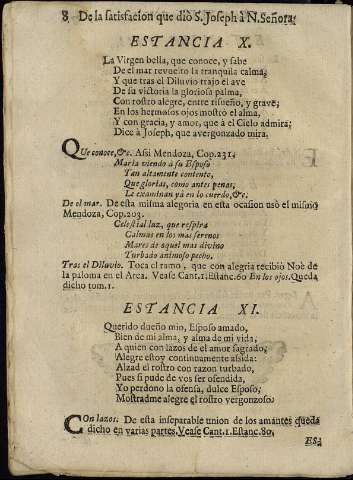 8 De la satisfacion que diò S. Joseph à N. Señora.
ESTANCIA X.
La Virgen bella, que conoce, y sabe
De el mar revuelto la tranquila calma,
Y que tras el Diluvio trajo el ave
De su victoria la gloriosa palma,
Con rostro alegre, entre risueño, y grave,
En los hermosos ojos mostrò el alma,
Y con gracia, y amor, que à el Cielo admira,
Dice à Joseph, que avergonzado mira.
QUe conoce, &c. Assi Mendoza, Cop. 231.
Maria viendo à su Esposo
Tan altamente contento,
Que glorias, como antes penas,
Le examinan yà en lo cuerdo, &c.
De el mar. De esta misma alegoria en esta ocasion usò el mismo
Mendoza, Cop. 203.
Celestial luz, que respira
Calmas en los mas serenos
Mares de aquel mas divino
Turbado animoso pecho.
Tras el Diluvio. Toca el ramo, que con alegria recibiò Noè de
la paloma en el Arca. Vease Cant. 1. Estanc. 60 En los ojos. Queda
dicho tom. 1.
ESTANCIA XI.
Querido dueño mio, Esposo amado,
Bien de mi alma, y alma de mi vida,
A quien con lazos de el amor sagrado,
Alegre estoy continuamente assida:
Alzad el rostro con razon turbado,
Pues si pude de vos ser ofendida,
Yo perdono la ofensa, dulce Esposo,
Mostradme alegre el rostro vergonzoso.
COn lazos. De esta inseparable union de los amantes queda
dicho en varias partes. Vease Cant. 1. Estanc. 80.
ES-